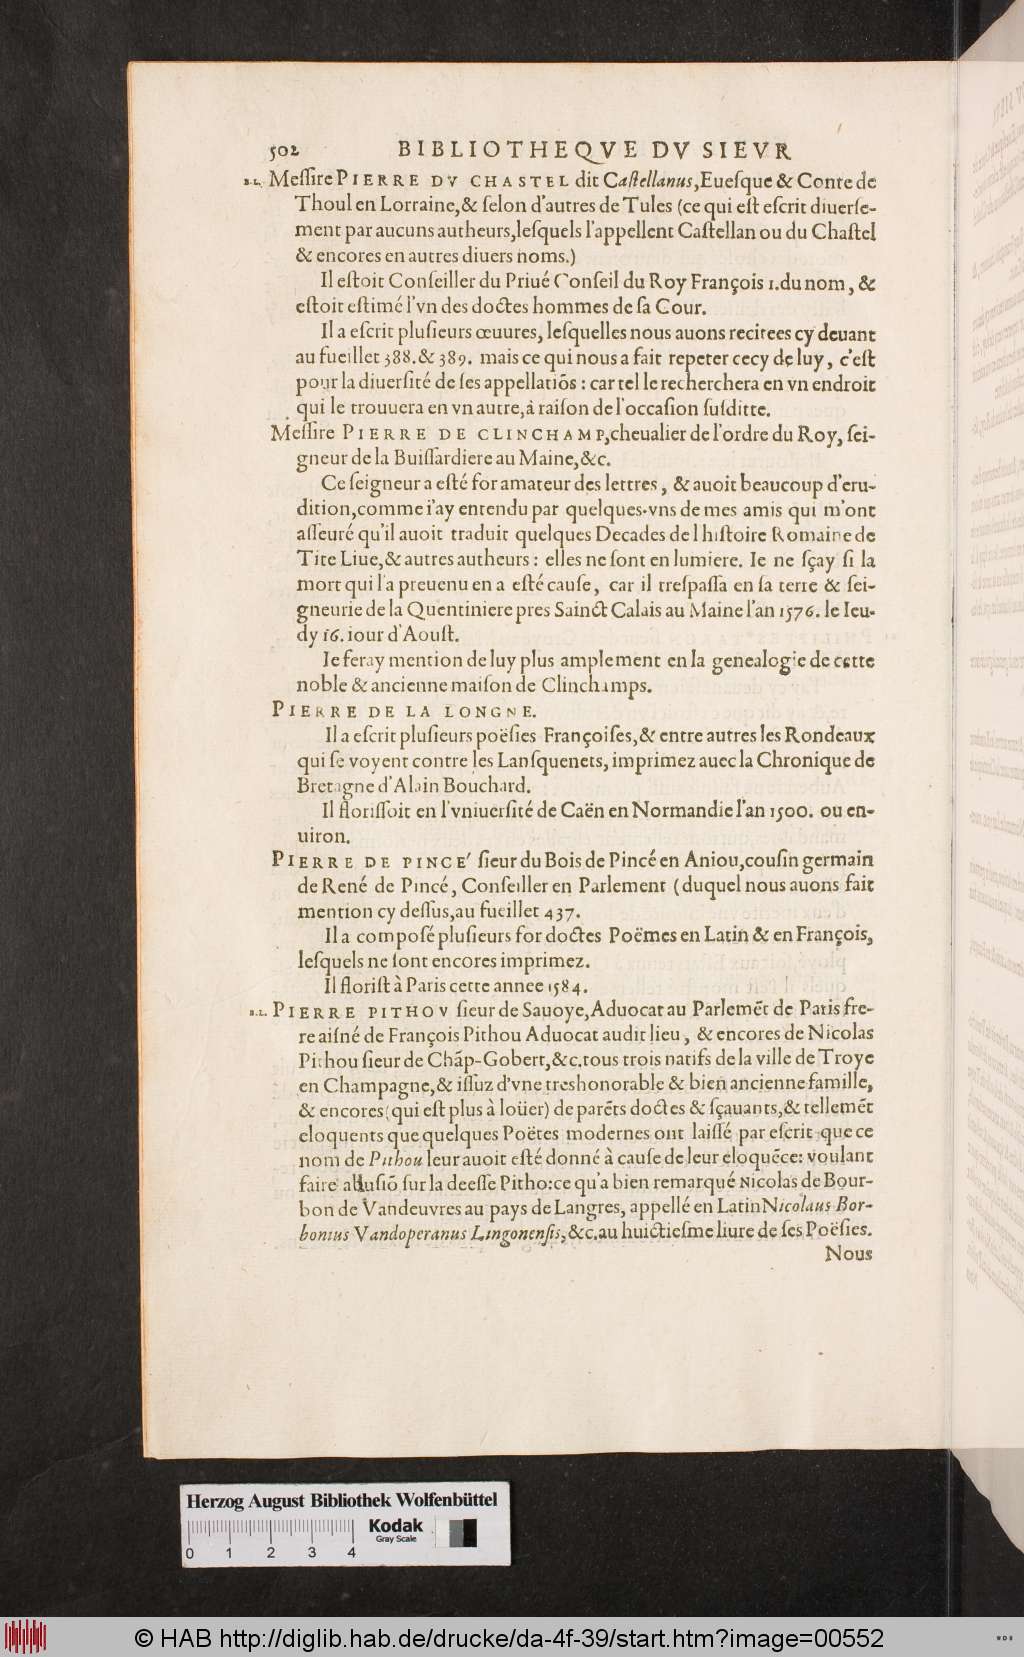 502 BIBLIOTHEQVE DV SIEVR
B.L. Meſſire PIERRE DV CHASTEL dit Caſtellanus, Eueſque & Conte de
Thoul en Lorraine, & ſelon d'autres de Tules (ce qui eſt eſcrit diuerſe-
ment par aucuns autheurs, leſquels l'appellent Caſtellan ou du Chaſtel
& encores en autres diuers noms.)
Il eſtoit Conſeiller du Priué Conſeil du Roy François 1. du nom, &
eſtoit eſtimé l'vn des doctes hommes de ſa Cour.
Il a eſcrit pluſieurs œuures, leſquelles nous auons recitees cy deuant
au fueillet 388. & 389. mais ce qui nous a fait repeter cecy de luy, c'eſt
pour la diuerſité de ſes appellatiõs : car tel le recherchera en vn endroit
qui le trouuera en vn autre, à raiſon de l'occaſion ſuſditte.
Meſſire PIERRE DE CLINCHAMP, cheualier de l'ordre du Roy, ſei-
gneur de la Buiſſardiere au Maine, &c.
Ce ſeigneur a eſté for amateur des lettres, & auoit beaucoup d'eru-
dition, comme i'ay entendu par quelques-vns de mes amis qui m'ont
aſſeuré qu'il auoit traduit quelques Decades de l hiſtoire Romaine de
Tite Liue, & autres autheurs : elles ne ſont en lumiere. Ie ne ſçay ſi la
mort qui l'a preuenu en a eſté cauſe, car il treſpaſſa en ſa terre & ſei-
gneurie de la Quentiniere pres Sainct Calais au Maine l'an 1576. le Ieu-
dy 16. iour d'Aouſt.
Ie feray mention de luy plus amplement en la genealogie de cette
noble & ancienne maiſon de Clinchamps.
PIERRE DE LA LONGNE.
Il a eſcrit pluſieurs poëſies Françoiſes, & entre autres les Rondeaux
qui ſe voyent contre les Lanſquenets, imprimez auec la Chronique de
Bretagne d'Alain Bouchard.
Il floriſſoit en l'vniuerſité de Caën en Normandie l'an 1500. ou en-
uiron.
PIERRE DE PINCE' ſieur du Bois de Pincé en Aniou, couſin germain
de René de Pincé, Conſeiller en Parlement (duquel nous auons fait
mention cy deſſus, au fueillet 437.
Il a compoſé pluſieurs for doctes Poëmes en Latin & en François,
leſquels ne ſont encores imprimez.
Il floriſt à Paris cette annee 1584.
B.L. PIERRE PITHOV ſieur de Sauoye, Aduocat au Parlemẽt de Paris fre-
re aiſné de François Pithou Aduocat audit lieu, & encores de Nicolas
Pithou ſieur de Chãp-Gobert, &c. tous trois natifs de la ville de Troye
en Champagne, & iſſuz d'vne treshonorable & bien ancienne famille,
& encores (qui eſt plus à loüer) de parẽts doctes & ſçauants, & tellemẽt
eloquents que quelques Poëtes modernes ont laiſſé par eſcrit que ce
nom de Pithou leur auoit eſté donné à cauſe de leur eloquẽce: voulant
faire alluſiõ ſur la deeſſe Pitho: ce qu'a bien remarqué Nicolas de Bour-
bon de Vandeuvres au pays de Langres, appellé en Latin Nicolaus Bor-
bonius Vandoperanus Lingonenſis, &c. au huictieſme liure de ſes Poëſies.
Nous
Herzog August Bibliothek Wolfenbüttel
0 1 2 3 4
Kodak
Gray Scale
© HAB http://diglib.hab.de/drucke/da-4f-39/start.htm?image=00552